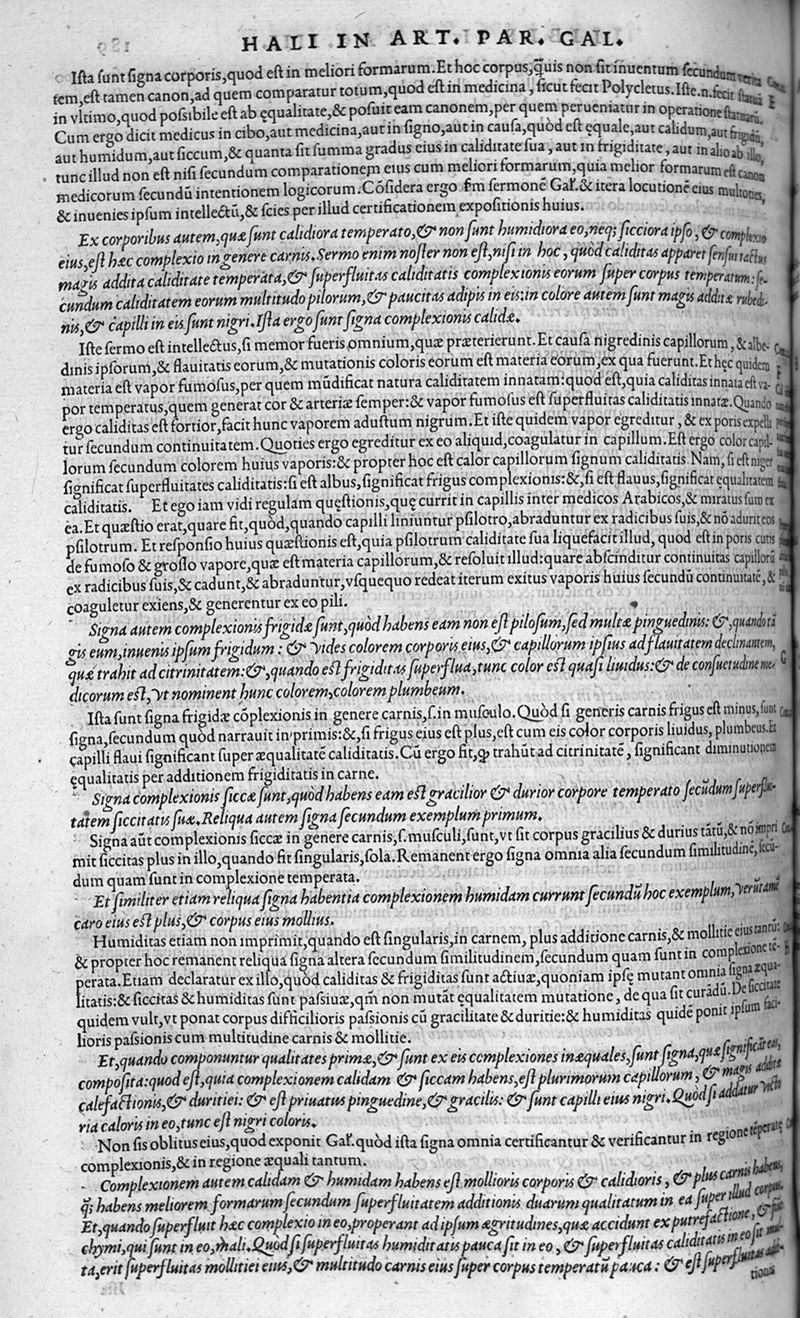 HALI IN ART. PAR. GAL.
Ista sunt signa corporis,quod est in meliori formarum.Et hoc corpus,q̃uis non sit inuentum secundum verita
tem,est tamen canon,ad quem comparatur totum,quod est in medicina, sicut fecit Polycletus.Iste.n.fecit statuã
in vltimo,quod possibile est ab ęqualitate,& posuit eam canonem,per quem perueniatur in operatione statuarũ.
Cum ergo dicit medicus in cibo,aut medicina,aut in signo,aut in causa,quòd est ęquale,aut calidum,aut frigidũ,
aut humidum,aut siccum,& quanta sit summa gradus eius in caliditate sua, aut in frigiditate, aut in alio ab illo,
tunc illud non est nisi secundum comparationem eius cum meliori formarum,quia melior formarum est canon
medicorum secundũ intentionem logicorum.Cõsidera ergo fm sermonẽ Gal. & itera locutionẽ eius multoties,
& inuenies ipsum intellectũ,& scies per illud certificationem expositionis huius.
Ex corporibus autem,quæ sunt calidiora temperato,& non sunt humidiora eo,neq; sicciora ipso, & complexio
eius,est hæc complexio in genere carnis.Sermo enim noster non est,nisi in hoc, quòd caliditas apparet sensui tactus
magis addita caliditate temperata,& superfluitas caliditatis complexionis eorum super corpus temperatum: se-
cundum caliditatem eorum multitudo pilorum,& paucitas adipis in eis:in colore autem sunt magis additæ rubedi-
nis,& capilli in eis sunt nigri.Ista ergo sunt signa complexionis calidæ.
Iste sermo est intellectus,si memor fueris omnium,quæ præterierunt.Et causa nigredinis capillorum, & albe-
dinis ipsorum,& flauitatis eorum,& mutationis coloris eorum est materia eorum,ex qua fuerunt.Et hęc quidem
materia est vapor fumosus,per quem mũdificat natura caliditatem innatam:quod est,quia caliditas innata est va-
por temperatus,quem generat cor & arteriæ semper:& vapor fumosus est superfluitas caliditatis innatæ.Quando
ergo caliditas est fortior,facit hunc vaporem adustum nigrum.Et iste quidem vapor egreditur, & ex poris expelli
tur secundum continuitatem.Quoties ergo egreditur ex eo aliquid,coagulatur in capillum.Est ergo color capil-
lorum secundum colorem huius vaporis:& propter hoc est calor capillorum signum caliditatis Nam, si est niger
significat superfluitates caliditatis:si est albus,significat frigus complexionis:&,si est flauus,significat ęqualitatem
caliditatis. Et ego iam vidi regulam quęstionis,quę currit in capillis inter medicos Arabicos,& miratus sum ex
ea.Et quæstio erat,quare fit,quòd,quando capilli liniuntur psilotro,abraduntur ex radicibus suis,& nõ adurit eos
psilotrum. Et responsio huius quæstionis est,quia psilotrum caliditate sua liquefacit illud, quod est in poris cutis
de fumoso & grosso vapore,quæ est materia capillorum,& resoluit illud:quare abscinditur continuitas capillorũ
ex radicibus suis,& cadunt,& abraduntur,vsquequo redeat iterum exitus vaporis huius secundũ continuitatẽ, &
coaguletur exiens,& generentur ex eo pili.
Signa autem complexionis frigidæ sunt,quòd habens eam non est pilosum,sed multæ pinguedinis: &,quando tã
gis eum,inuenis ipsum frigidum: & vides colorem corporis eius,& capillorum ipsius ad flauitatem declinantem,
quæ trahit ad citrinitatem:&,quando est frigiditas superflua,tunc color est quasi liuidus:& de consuetudine me-
dicorum est,vt nominent hunc colorem,colorem plumbeum.
Ista sunt signa frigidæ cõplexionis in genere carnis,s.in musculo.Quòd si generis carnis frigus est minus,sunt
signa,secundum quod narrauit in primis:&,si frigus eius est plus,est cum eis color corporis liuidus, plumbeus.Et
capilli flaui significant super æqualitatẽ caliditatis.Cũ ergo fit,ꝙ trahũt ad citrinitatẽ, significant diminutionem
ęqualitatis per additionem frigiditatis in carne.
Signa complexionis siccæ sunt,quòd habens eam est gracilior & durior corpore temperato secũdum superflui-
tatem siccitatis suæ.Reliqua autem signa secundum exemplum primum.
Signa aũt complexionis siccæ in genere carnis,s.musculi,sunt,vt sit corpus gracilius & durius tãtũ,& nõ impri
mit siccitas plus in illo,quando fit singularis,sola.Remanent ergo signa omnia alia secundum similitudinẽ,secu-
dum quam sunt in complexione temperata.
Et similiter etiam reliqua signa habentia complexionem humidam currunt secundũ hoc exemplum,verũtamẽ
caro eius est plus,& corpus eius mollius.
Humiditas etiam non imprimit,quando est singularis,in carnem, plus additione carnis,& mollitie eius tantũ:
& propter hoc remanent reliqua signa altera secundum similitudinem,secundum quam sunt in complexione tẽ-
perata.Etiam declaratur ex illo,quòd caliditas & frigiditas sunt actiuæ,quoniam ipsę mutant omnia signa æqua-
litatis:& siccitas & humiditas sunt passiuæ,qm̃ non mutãt ęqualitatem mutatione, de qua sit curadũ.De siccitate
quidem vult,vt ponat corpus difficilioris passionis cũ gracilitate & duritie:& humiditas quidẽ ponit ipsum faci-
lioris passionis cum multitudine carnis & mollitie.
Et,quando componuntur qualitates primæ,& sunt ex eis complexiones inæquales,sunt signa,quæ significãt eas,
composita:quod est,quia complexionem calidam & siccam habens,est plurimorum capillorum, & magis addite
calefactionis,& duritiei: & est priuatus pinguedine,& gracilis: & sunt capilli eius nigri.Quòd si addatur victo
ria caloris in eo,tunc est nigri coloris.
Non sis oblitus eius,quod exponit Gal.quòd ista signa omnia certificantur & verificantur in regione tẽperatę
complexionis,& in regione æquali tantum.
Complexionem autem calidam & humidam habens est mollioris corporis & calidioris, & plus carnis habens,
q̃; habens meliorem formarum secundum superfluitatem additionis duarum qualitatum in ea super illud corpus.
Et,quando superfluit hæc complexio in eo,properant ad ipsum ægritudines,quæ accidunt ex putrefactione, & sũt
chymi,qui sunt in eo,mali.Quòd si superfluitas humiditatis pauca sit in eo, & superfluitas caliditatis in eo sit mul-
ta,erit superfluitas mollitiei eius,& multitudo carnis eius super corpus temperatũ pauca: & est superfluitas addi-
tionis